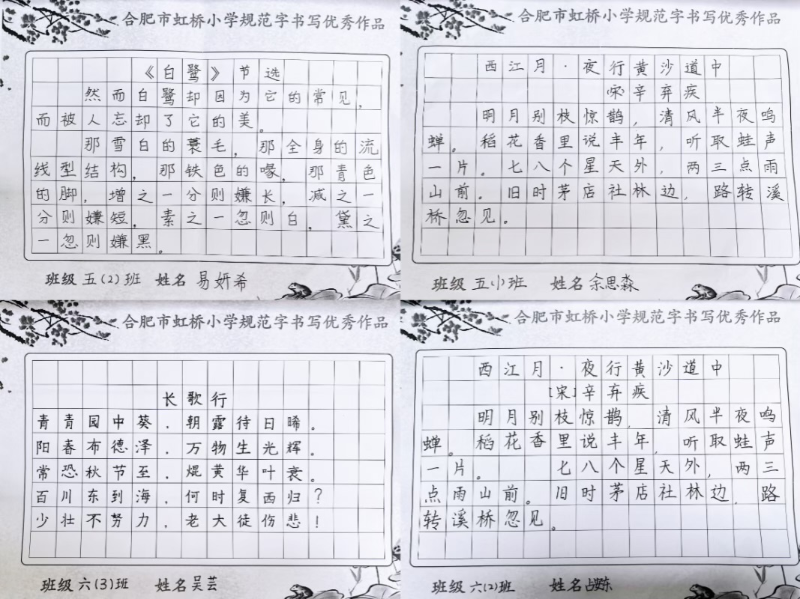 合肥市虹桥小学规范字书写优秀作品
《白鹭》节选
然而白鹭却因为它的常见，
而被人忘却了它的美。
那雪白的蓑毛，那全身的流
线型结构，那铁色的喙，那青色
的脚，增之一分则嫌长，减之一
分则嫌短，素之一忽则白，黛之
一忽则嫌黑。
班级 五(2)班 姓名 易妍希
合肥市虹桥小学规范字书写优秀作品
西江月·夜行黄沙道中
[宋]辛弃疾
明月别枝惊鹊，清风半夜鸣
蝉。稻花香里说丰年，听取蛙声
一片。七八个星天外，两三点雨
山前。旧时茅店社林边，路转溪
桥忽见。
班级 五 班 姓名 余思淼
合肥市虹桥小学规范字书写优秀作品
长歌行
青青园中葵，朝露待日晞。
阳春布德泽，万物生光辉。
常恐秋节至，焜黄华叶衰。
百川东到海，何时复西归？
少壮不努力，老大徒伤悲！
班级 六(3)班 姓名 吴芸
合肥市虹桥小学规范字书写优秀作品
西江月·夜行黄沙道中
[宋]辛弃疾
明月别枝惊鹊，清风半夜鸣
蝉。稻花香里说丰年，听取蛙声
一片。七八个星天外，两三
点雨山前。旧时茅店社林边，路
转溪桥忽见。
班级 六(2)班 姓名